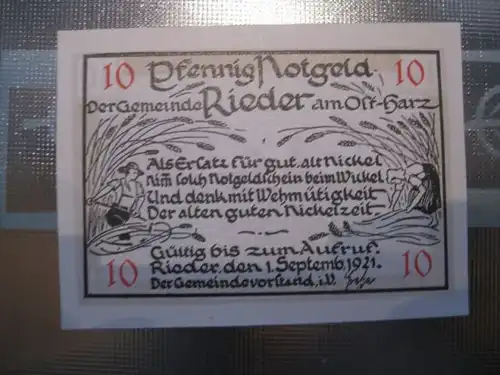 10 Pfennig Notgeld 10
Der Gemeinde Rieder am Ost-Harz
Als Ersatz für gut, alt Nickel
Nim̄ solch Notgeldschein beim Wickel
Und denk mit Wehmütigkeit
Der alten guten Nickelzeit.
Gültig bis zum Aufruf.
10 Rieder, den 1. Septemb. 1921. 10
Der Gemeindevorstand, i.V.